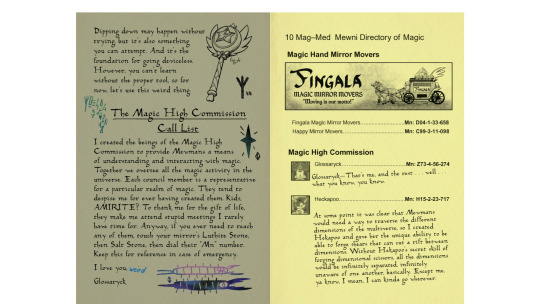 Dipping down may happen without
trying, but it's also something
you can attempt. And it's the
foundation for going deviceless.
However, you can't learn
without the proper tool, so for
now, let's use this weird thing.
The Magic High Commission
Call List
I created the beings of the Magic High
Commission to provide Mewmans a means
of understanding and interacting with magic.
Together we oversee all the magic activity in the
universe. Each council member is a representative
for a particular realm of magic. They tend to
despise me for ever having created them. Kids,
AMIRITE? To thank me for the gift of life,
they make me attend stupid meetings I rarely
have time for. Anyway, if you ever need to reach
any of them, touch your mirror's Luthite Stone,
then Salt Stone, then dial their "Mn" number.
Keep this for reference in case of emergency.
I love you weird
Glossaryck
10 Mag–Med Mewni Directory of Magic
Magic Hand Mirror Movers
FINGALA
MAGIC MIRROR MOVERS
"Moving is our motto!"
FINGALA
Fingala Magic Mirror Movers Mn: D04-1-33-658
Happy Mirror Movers Mn: C99-3-11-098
Magic High Commission
Glossaryck Mn: Z73-4-56-274
Glossaryck—That's me, and the rest . . . well . .
what you know, you know.
Hekapoo Mn: H15-2-23-717
At some point it was clear that Mewmans
would need a way to traverse the different
dimensions of the multiverse, so I created
Hekapoo and gave her the unique ability to be
able to forge shears that can cut a rift between
dimensions. Without Hekapoo's secret skill of
forging dimensional scissors, all the dimensions
would be infinitely separated, infinitely
unaware of one another, basically. Except me,
ya know. I mean, I can kinda go wherever.